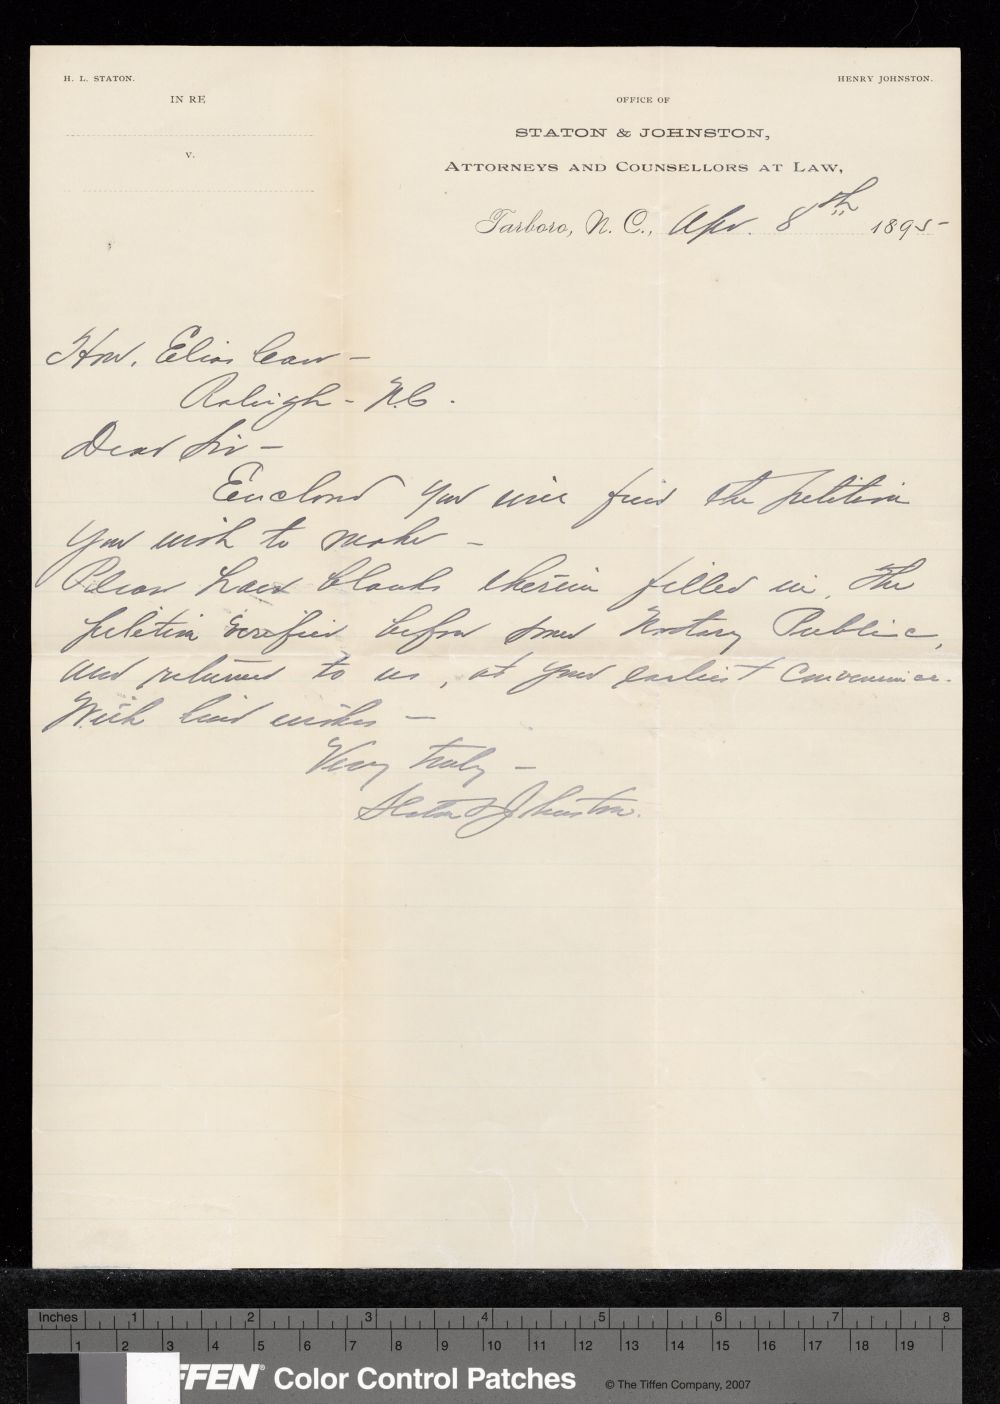 H. L. STATON.
HENRY JOHNSTON.
IN RE
OFFICE OF
STATON & JOHNSTON,
V.
ATTORNEYS AND COUNSELLORS AT LAW,
Tarboro, N. C., Apr. 8th 1895
Hon. Elias Carr -
Raleigh - N.C.
Dear Sir -
Enclosed you will find the petition
you wish to make -
Please have blanks therein filled in, the
petition verified before some Notary Public,
and returned to us, at your earliest convenience.
With kind wishes -
Very truly -
Staton & Johnston.
Inches 1 2 3 4 5 6 7 8
1 2 3 4 5 6 7 8 9 10 11 12 13 14 15 16 17 18 19
FFEN® Color Control Patches © The Tiffen Company, 2007